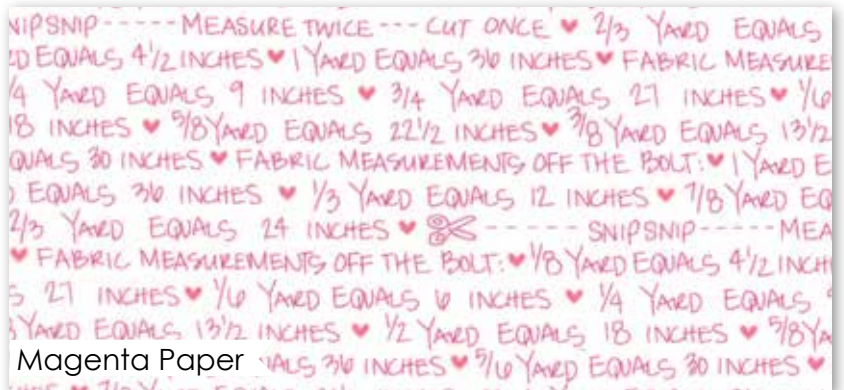 SNIPSNIP - - - - - MEASURE TWICE - - - CUT ONCE ♥ 2/3 YARD EQUALS
D EQUALS 4 1/2 INCHES ♥ 1 YARD EQUALS 36 INCHES ♥ FABRIC MEASURE
/4 YARD EQUALS 9 INCHES ♥ 3/4 YARD EQUALS 27 INCHES ♥ 1/6
18 INCHES ♥ 5/8 YARD EQUALS 22 1/2 INCHES ♥ 3/8 YARD EQUALS 13 1/2
QUALS 30 INCHES ♥ FABRIC MEASUREMENTS OFF THE BOLT: ♥ 1 YARD E
EQUALS 36 INCHES ♥ 1/3 YARD EQUALS 12 INCHES ♥ 7/8 YARD EQ
2/3 YARD EQUALS 24 INCHES ♥ - - - - - SNIPSNIP - - - - - MEA
♥ FABRIC MEASUREMENTS OFF THE BOLT: ♥ 1/8 YARD EQUALS 4 1/2 INCH
S 27 INCHES ♥ 1/6 YARD EQUALS 6 INCHES ♥ 1/4 YARD EQUALS
YARD EQUALS 13 1/2 INCHES ♥ 1/2 YARD EQUALS 18 INCHES ♥ 5/8 YA
Magenta Paper UALS 36 INCHES ♥ 5/6 YARD EQUALS 30 INCHES ♥